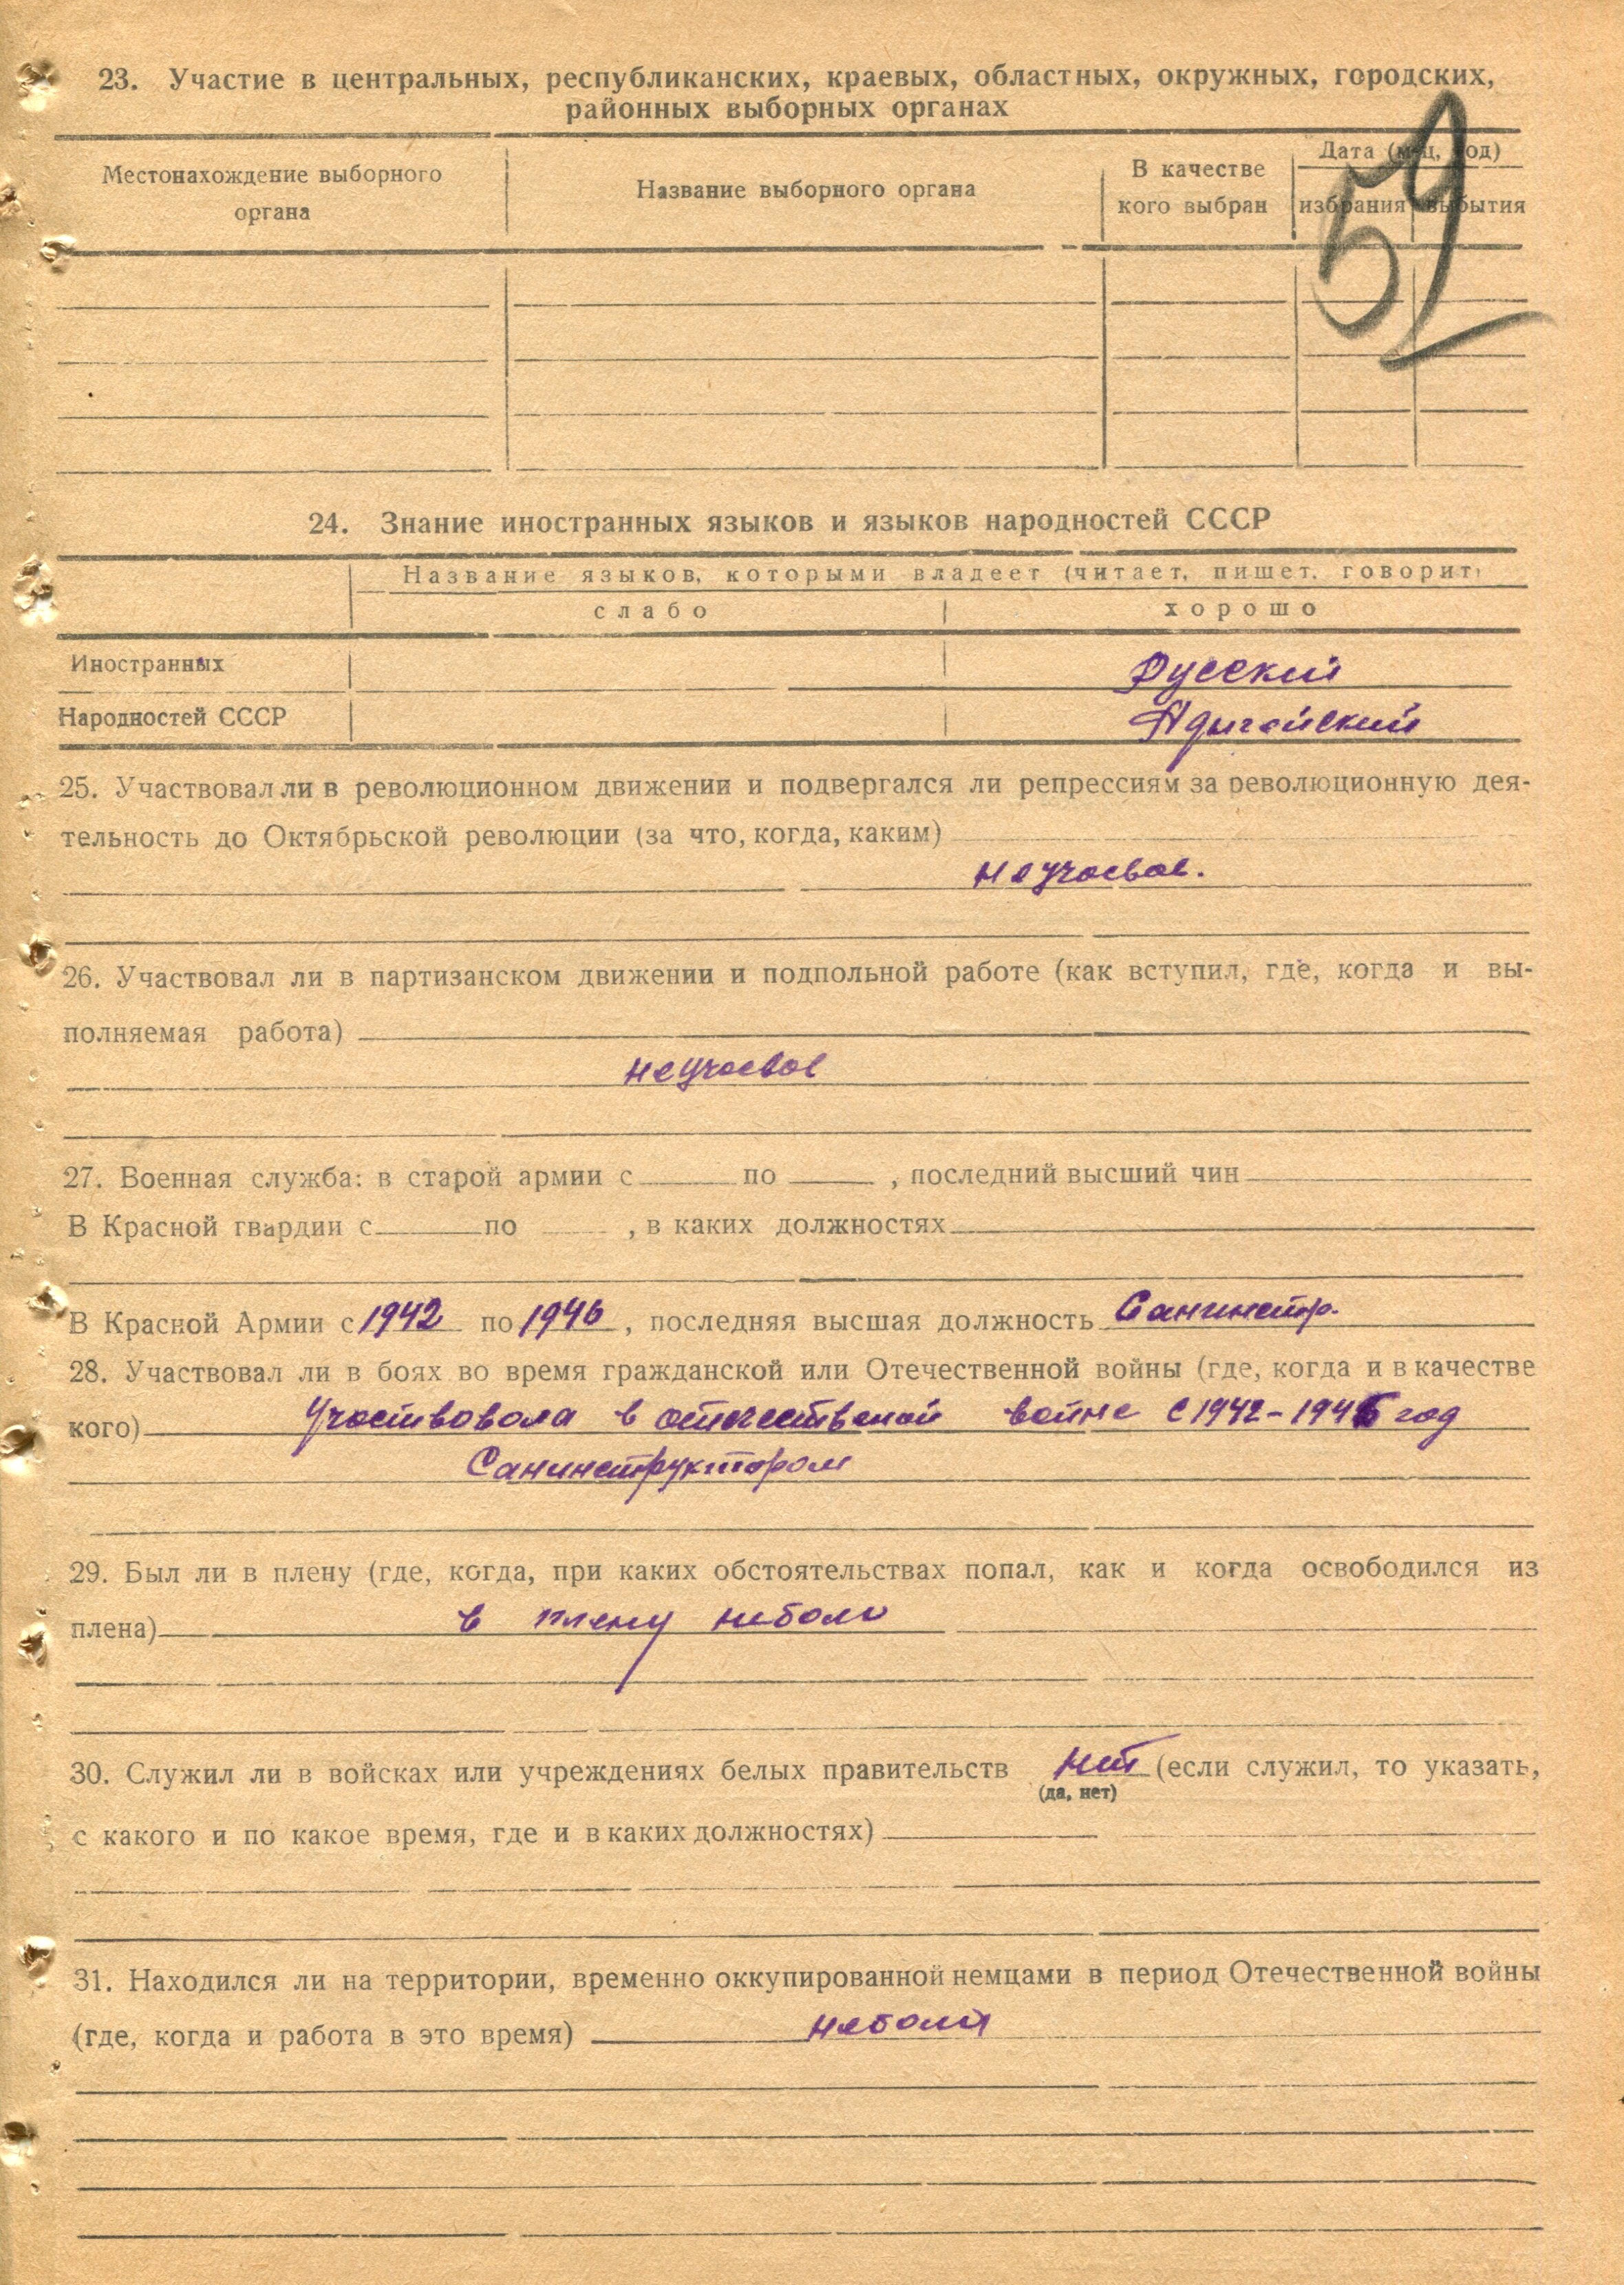 59
23. Участие в центральных, республиканских, краевых, областных, окружных, городских,
районных выборных органах
Местонахождение выборного
органа
Название выборного органа
В качестве
кого выбран
Дата (м-ц, год)
избрания
выбытия
24. Знание иностранных языков и языков народностей СССР
Название языков, которыми владеет (читает, пишет, говорит)
слабо
хорошо
Иностранных
Русский
Народностей СССР
Адыгейский
25. Участвовал ли в революционном движении и подвергался ли репрессиям за революционную дея-
тельность до Октябрьской революции (за что, когда, каким)
не участвов.
26. Участвовал ли в партизанском движении и подпольной работе (как вступил, где, когда и вы-
полняемая работа)
27. Военная служба: в старой армии с по , последний высший чин
В Красной гвардии с по , в каких должностях
В Красной Армии с 1942 по 1946, последняя высшая должность Санинстр.
28. Участвовал ли в боях во время гражданской или Отечественной войны (где, когда и в качестве
кого) Участвовола в отечественой войне с 1942-1946 год
Санинструктором
29. Был ли в плену (где, когда, при каких обстоятельствах попал, как и когда освободился из
плена) в плену небола
30. Служил ли в войсках или учреждениях белых правительств нет (если служил, то указать,
(да, нет)
с какого и по какое время, где и в каких должностях)
31. Находился ли на территории, временно оккупированной немцами в период Отечественной войны
(где, когда и работа в это время) небола